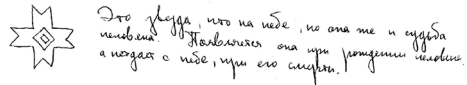 Это звезда, что на небе, но она же и судьба
человека. Появляется она при рождении человека,
а падает с неба, при его смерти.